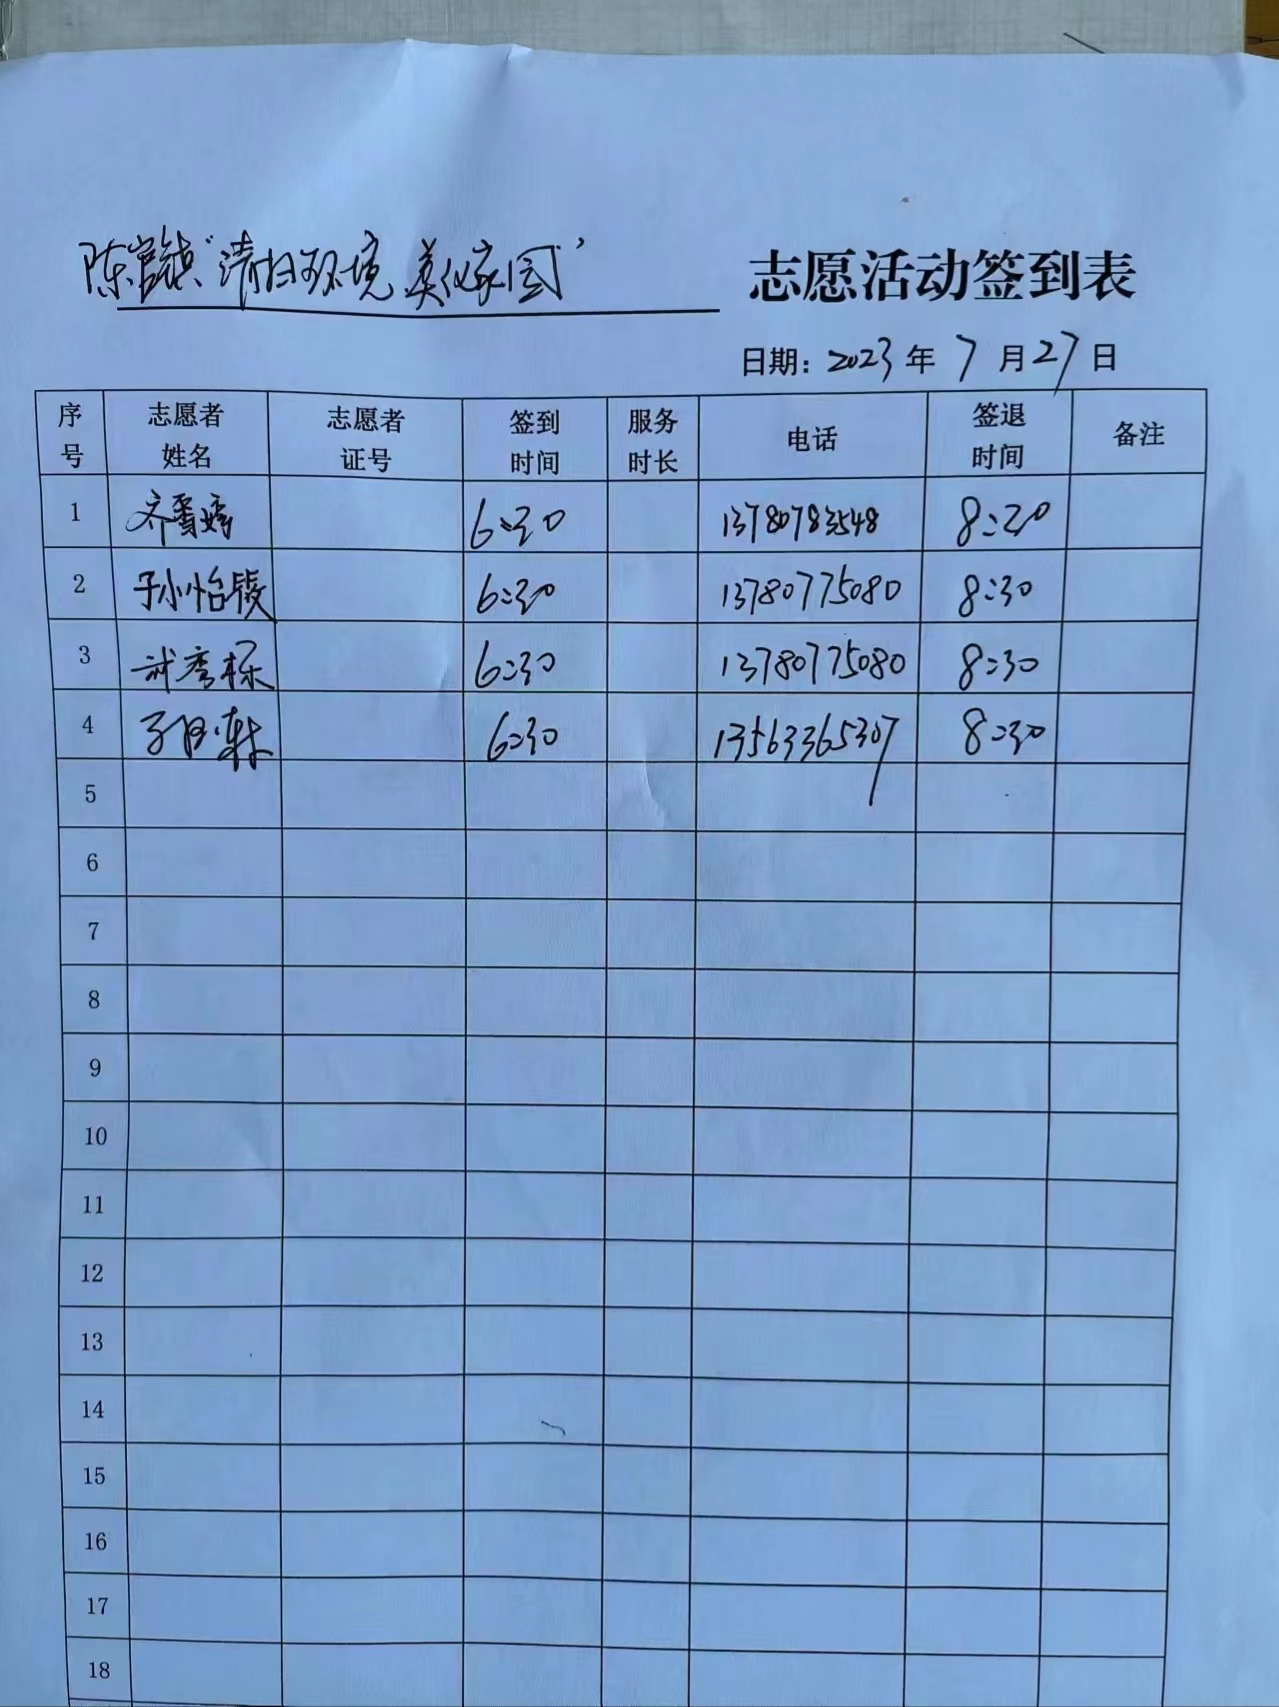 陈官镇“清扫环境 美化家园” 志愿活动签到表
日期：2023年7月27日
序号 志愿者姓名 志愿者证号 签到时间 服务时长 电话 签退时间 备注
1 齐雪婷 6:30 13780783548 8:20
2 6:30 13780775080 8:30
3 6:30 13780775080 8:30
4 6:30 13563365307 8:30
5
6
7
8
9
10
11
12
13
14
15
16
17
18